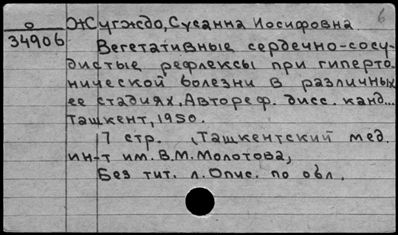 6
О
34906
Жугждо, Сусанна Иосифовна
Вегетативные сердечно-сосу-
дистые рефлексы при гиперто-
нической болезни в различных
ее стадиях. Автореф. дисс. канд...
Ташкент, 1950.
7 стр. (Ташкентский мед.
ин-т им. В.М. Молотова,
Без тит. л. Опис. по обл.